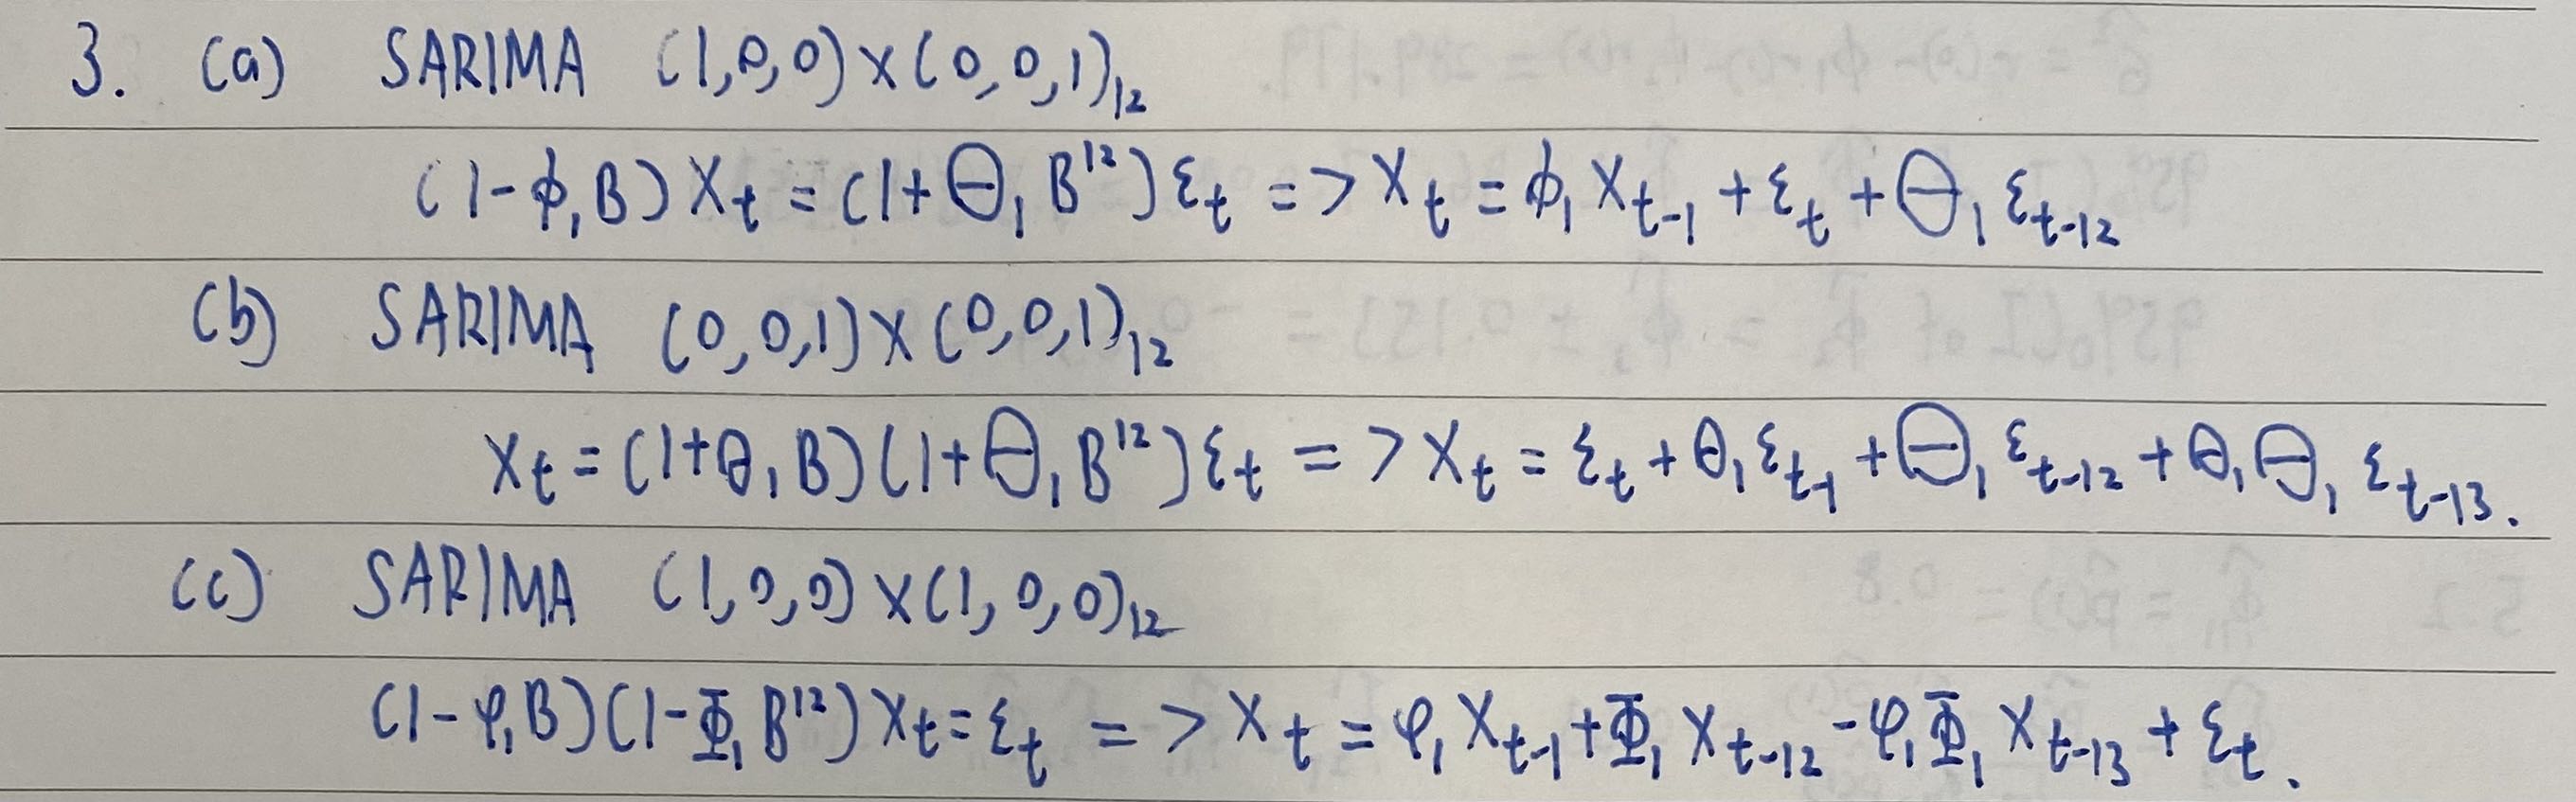 3. (a) SARIMA (1,0,0)×(0,0,1)₁₂
(1-ϕ₁B)Xₜ=(1+Θ₁B¹²)εₜ => Xₜ=ϕ₁Xₜ₋₁+εₜ+Θ₁εₜ₋₁₂
(b) SARIMA (0,0,1)×(0,0,1)₁₂
Xₜ=(1+θ₁B)(1+Θ₁B¹²)εₜ => Xₜ=εₜ+θ₁εₜ₋₁+Θ₁εₜ₋₁₂+θ₁Θ₁εₜ₋₁₃.
(c) SARIMA (1,0,0)×(1,0,0)₁₂
(1-φ₁B)(1-Φ₁B¹²)Xₜ=εₜ => Xₜ=φ₁Xₜ₋₁+Φ₁Xₜ₋₁₂-φ₁Φ₁Xₜ₋₁₃+εₜ.